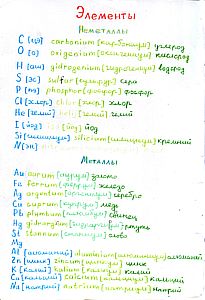 Элементы
Неметаллы
C [цэ] carbonium [карбониум] углерод
O [о] oxigenium [оксигениум] кислород
H [аш] hidrogenium [гидрогениум] водород
S [эс] sulfur [сульфур] сера
P [пэ] phosphor [фосфор] фосфор
Cl [хлор] chlor [хлор] хлор
He [гелий] [гелий] гелий
I [йод] [йод] йод
[силициум] silicium [силициум] кремний
N [эн]
Металлы
Au aurum [аурум] золото
Fe ferrum [феррум] железо
Ag argentum [аргентум] серебро
Cu cuprum [купрум] медь
Pb plumbum [плюмбум] свинец
Hg ртуть
St stannum [станнум] олово
Mg
Al [алюминий] aluminium [алюминиум] алюминий
Zn [цинк] zincum [цинкум] цинк
K [калий] kalium [калиум] калий
Ca [кальций] calcium [кальциум] кальций
Na [натрий] natrium [натриум] натрий